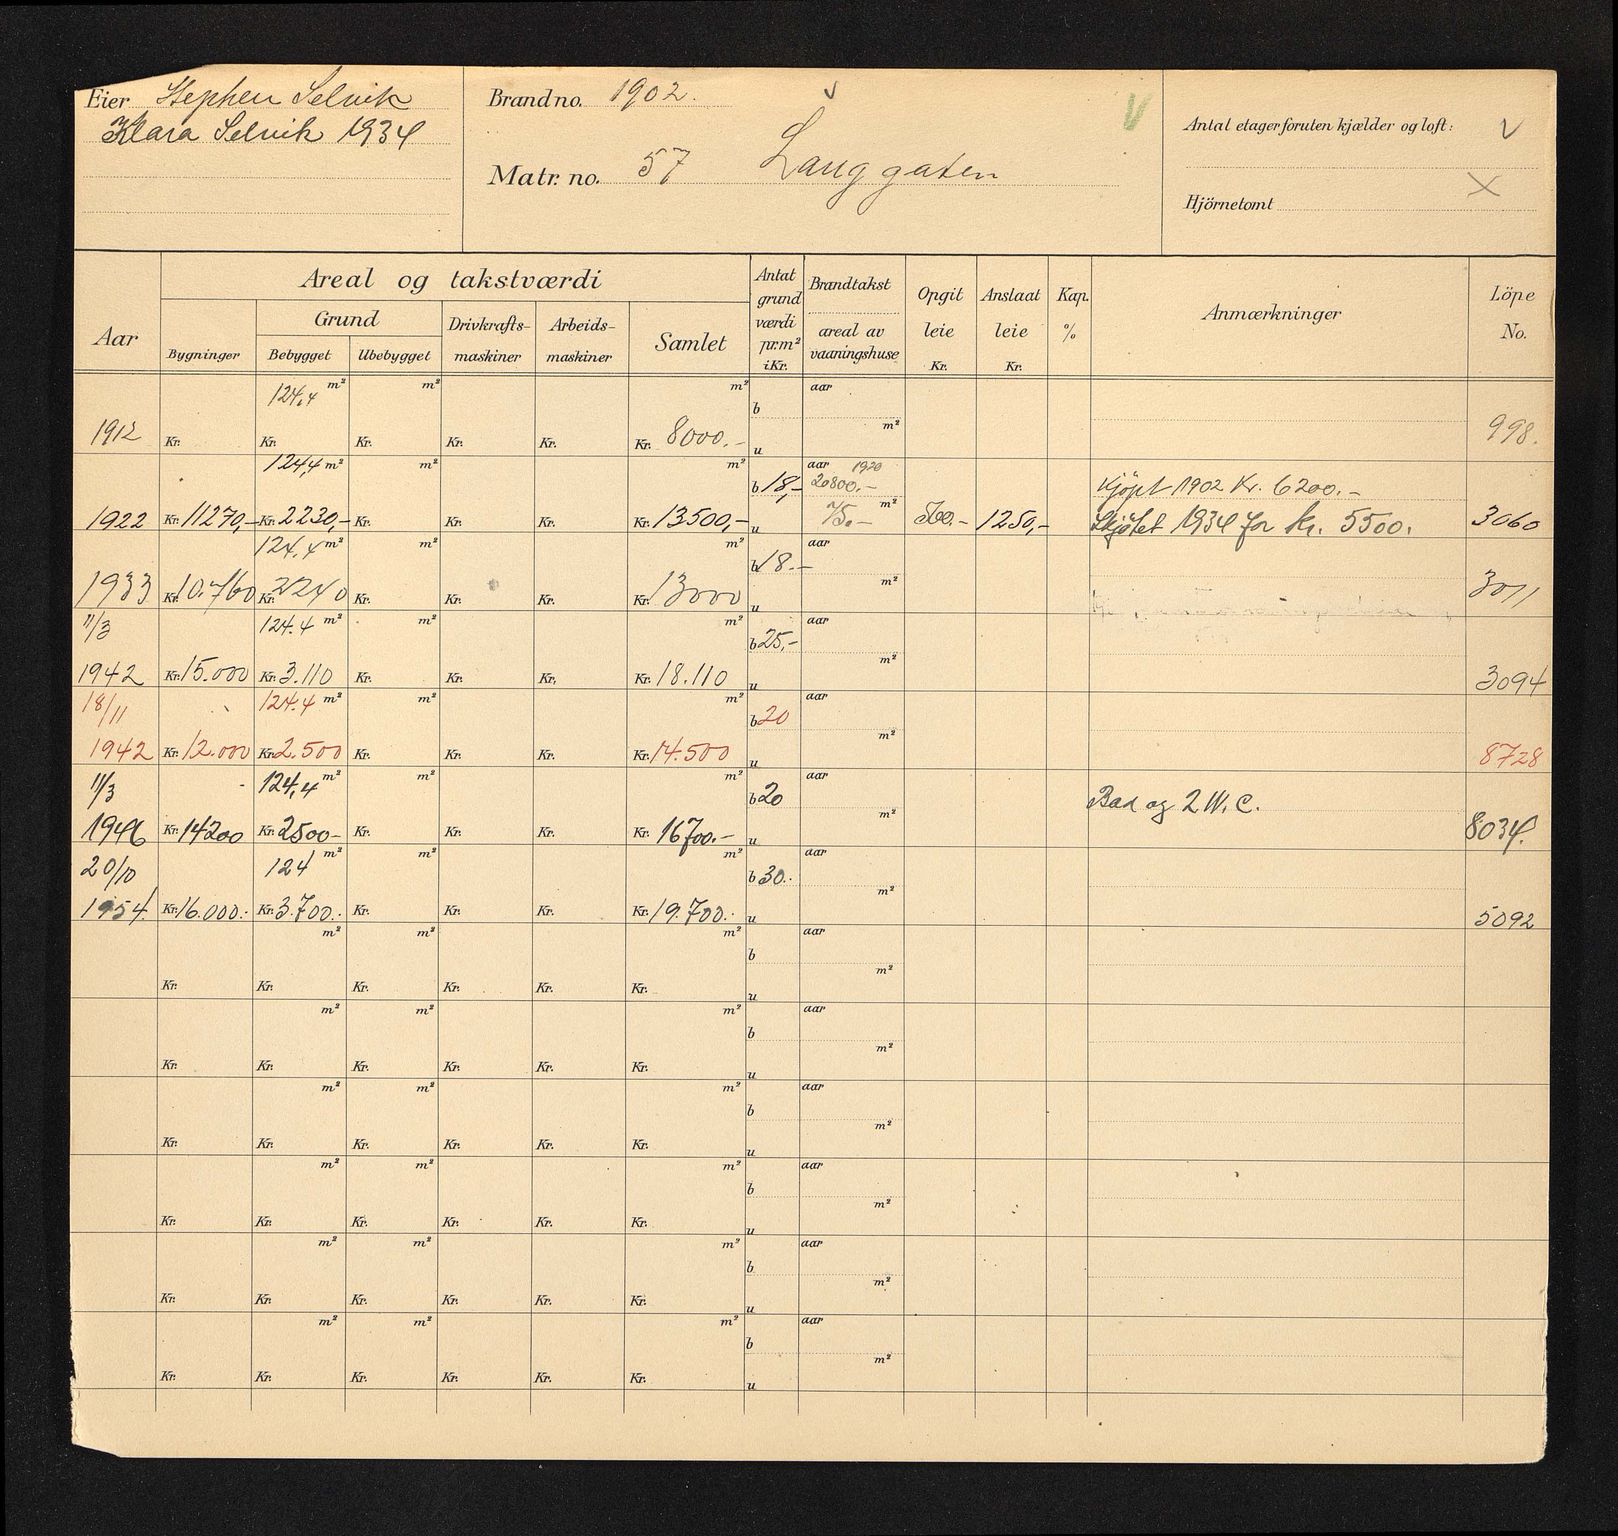 Eier Stephen Selvik
Klara Selvik 1934
Brand no. 1902.
Matr. no. 57 Langgaten
Antal etager foruten kjælder og loft: V
Hjörnetomt X
Aar
Areal og takstværdi
Bygninger
Grund
Bebygget
Ubebygget
Drivkrafts-
maskiner
Arbeids-
maskiner
Samlet
Antat
grund
værdi
pr.m²
i Kr.
Brandtakst
areal av
vaaningshuse
Opgit
leie
Kr.
Anslaat
leie
Kr.
Kap.
%
Anmærkninger
Löpe
No.
124,4 m² m² m² b aar
1912 Kr. Kr. Kr. Kr. Kr. Kr. 8000.- u m² 998.
124,4 m² m² m² b 18,- aar 1920
20800.- Kjöpt 1902 Kr. 6200.-
1922 Kr. 11270,- Kr. 2230,- Kr. Kr. Kr. Kr. 13500,- u 75.- m² 500.- 1250,- Skjötet 1934 for kr. 5500. 3060
124,4 m² m² m² b 18.- aar
1933 Kr. 10.760 Kr. 2240 Kr. Kr. Kr. Kr. 13000 u m² 3011
11/3 124.4 m² m² m² b 25,- aar
1942 Kr. 15.000 Kr. 3.110 Kr. Kr. Kr. Kr. 18.110 u m² 3094
18/11 124.4 m² m² m² b 20 aar
1942 Kr. 12.000 Kr. 2.500 Kr. Kr. Kr. Kr. 14.500 u m² 8728
11/3 124,4 m² m² m² b 20 aar Bad og 2 W.C.
1946 Kr. 14200 Kr. 2500- Kr. Kr. Kr. Kr. 16700.- u m² 8034.
20/10 124 m² m² m² b 30.- aar
1954. Kr. 16.000.- Kr. 3.700.- Kr. Kr. Kr. Kr. 19.700.- u m² 5092
m² m² m² b aar
Kr. Kr. Kr. Kr. Kr. Kr. u m²
m² m² m² b aar
Kr. Kr. Kr. Kr. Kr. Kr. u m²
m² m² m² b aar
Kr. Kr. Kr. Kr. Kr. Kr. u m²
m² m² m² b aar
Kr. Kr. Kr. Kr. Kr. Kr. u m²
m² m² m² b aar
Kr. Kr. Kr. Kr. Kr. Kr. u m²
m² m² m² b aar
Kr. Kr. Kr. Kr. Kr. Kr. u m²